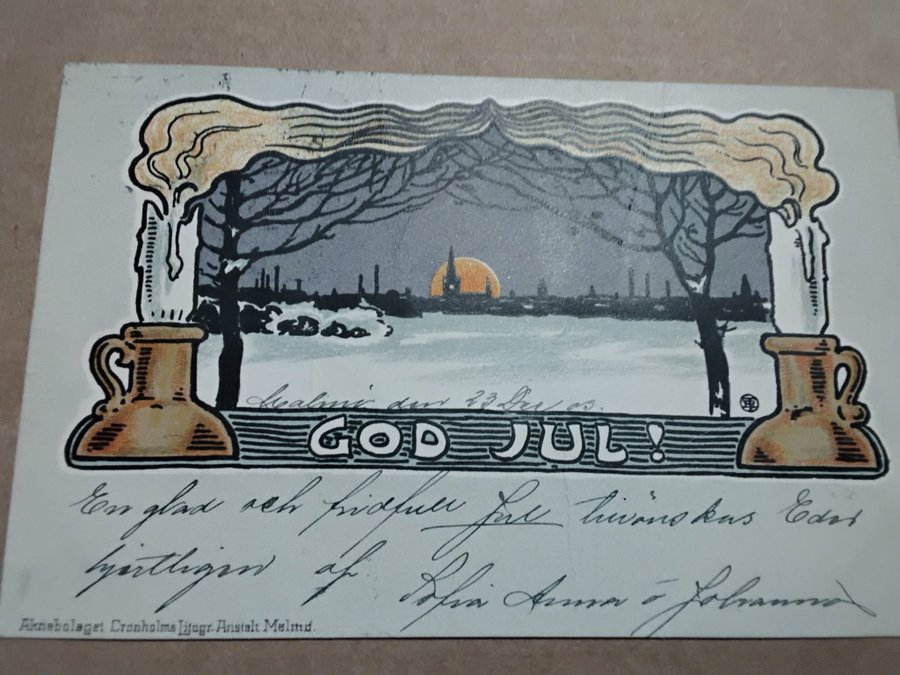 Malmö den 23 Dec 03.
GOD JUL!
En glad och fridfull Jul tillönskas Eder
hjertligen af
Sofia Anna o Johanna
Aktiebolaget Cronholms Litogr. Anstalt Malmö.